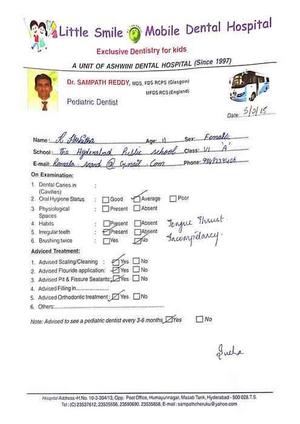 Little Smile Mobile Dental Hospital
Exclusive Dentistry for kids
A UNIT OF ASHWINI DENTAL HOSPITAL (Since 1997)
Dr. SAMPATH REDDY, MDS, FDS RCPS (Glasgow)
MFDS RCS (England)
Pediatric Dentist
Date:
Name: Age: 11 Sex: Female
School: The Hyderabad Public School Class: VI 'A'
E-mail: @gmail.com Phone:
On Examination:
1. Dental Caries in :
(Cavities)
2. Oral Hygiene Status : Good Average Poor
3. Physiological : Present No
Spaces
4. Habits : Present No Tongue Thrust
5. Irregular teeth : Present No Incompetancy
6. Brushing twice : Yes No
Adviced Treatment:
1. Advised Scaling/Cleaning : Yes No
2. Advised Flouride application: Yes No
3. Advised Pit & Fissure Sealants: Yes No
4. Advised Filling in
5. Advised Orthodontic treatment : Yes No
6. Others:
Note: Advised to see a pediatric dentist every 3-6 months Yes No
Sneha
Hospital Address:-H.No. 10-3-304/13, Opp. Post Office, Humayunnagar, Masab Tank, Hyderabad - 500 028 T.S.
Tel: (O) 23537612, 23535556, 23590690, 23535858, E-mail: sampathcheruku@yahoo.com